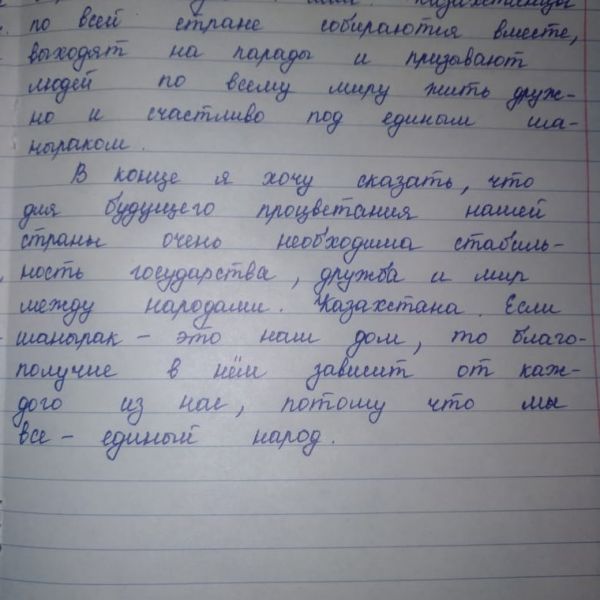 Казахстанцы
по всей стране собираются вместе,
выходят на парады и призывают
людей по всему миру жить друж-
но и счастливо под единым ша-
ныраком.
В конце я хочу сказать, что
для будущего процветания нашей
страны очень необходима стабиль-
ность государства, дружба и мир
между народами. Казахстана. Если
шанырак - это наш дом, то благо-
получие в нём зависит от каж-
дого из нас, потому что мы
все - единый народ.